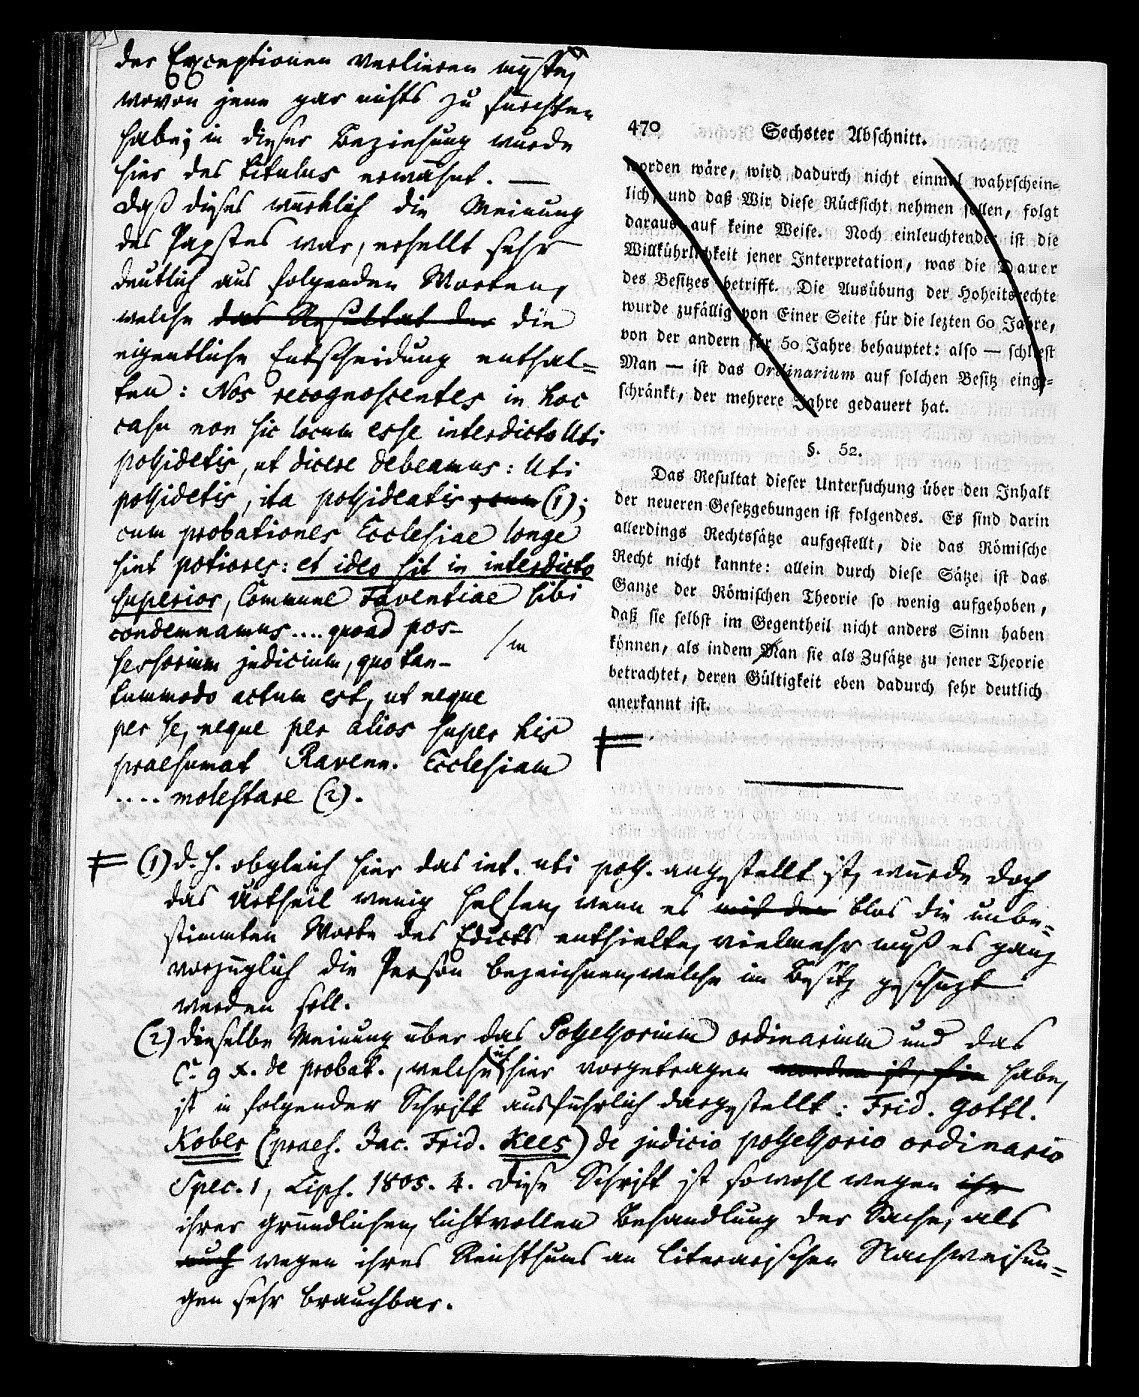 der Exceptionen verlieren müste,
wovon jene gar nichts zu fürchten
habe; in dieser Beziehung wurde
hier des titulus erwähnt. —
Daß dieses würklich die Meinung
des Papstes war, erhellt sehr
deutlich aus folgenden Worten,
welche das Resultat der die
eigentliche Entscheidung enthal=
ten: Nos recognoscentes in hoc
casu non sic locum esse interdicto Uti
possidetis, ut dicere debeamus: Uti
possidetis, ita possideatis (1);
cum probationes Ecclesiae longe
sint potiores: et ideo sit in interdicto
superior, Commune Faventiae sibi
condemnamus .... quoad pos-
sessorium judicium, quo tan-
tummodo actum est, ut neque
per se, neque per alios super his
praesumat Ravenn. Ecclesiam
.... molestare (2).
470 Sechster Abschnitt.
worden wäre, wird dadurch nicht einmal wahrschein=
lich, und daß Wir diese Rücksicht nehmen sollen, folgt
daraus auf keine Weise. Noch einleuchtender ist die
Willkührlichkeit jener Interpretation, was die Dauer
des Besitzes betrifft. Die Ausübung der Hoheitsrechte
wurde zufällig von Einer Seite für die lezten 60 Jahre,
von der andern für 50 Jahre behauptet: also — schließt
Man — ist das Ordinarium auf solchen Besitz einge=
schränkt, der mehrere Jahre gedauert hat.
§. 52.
Das Resultat dieser Untersuchung über den Inhalt
der neueren Gesetzgebungen ist folgendes. Es sind darin
allerdings Rechtssätze aufgestellt, die das Römische
Recht nicht kannte: allein durch diese Sätze ist das
Ganze der Römischen Theorie so wenig aufgehoben,
daß sie selbst im Gegentheil nicht anders Sinn haben
können, als indem Man sie als Zusätze zu jener Theorie
betrachtet, deren Gültigkeit eben dadurch sehr deutlich
anerkannt ist.
(1) d. h. obgleich hier das int. uti poss. angestellt ist, würde doch
das Urtheil wenig helfen, wenn es mit den blos die unbe=
stimmten Worte des Edicts enthielte, vielmehr muß es ganz
vorzüglich die Person bezeichnen, welche im Besitz geschüzt
werden soll.
(2) dieselbe Meinung über das Possessorium ordinarium und das
C. 9 X. de probat., welche ich hier vorgetragen worden ist, habe,
ist in folgender Schrift ausführlich dargestellt: Frid. Gottl.
Kober (praes. Jac. Frid. Kees) de judicio possessorio ordinario
Spec. 1, Lips. 1805. 4. Diese Schrift ist sowohl wegen ihr
ihrer gründlichen, lichtvollen Behandlung der Sache, als
auch wegen ihres Reichthums an literarischen Nachweisun=
gen sehr brauchbar.